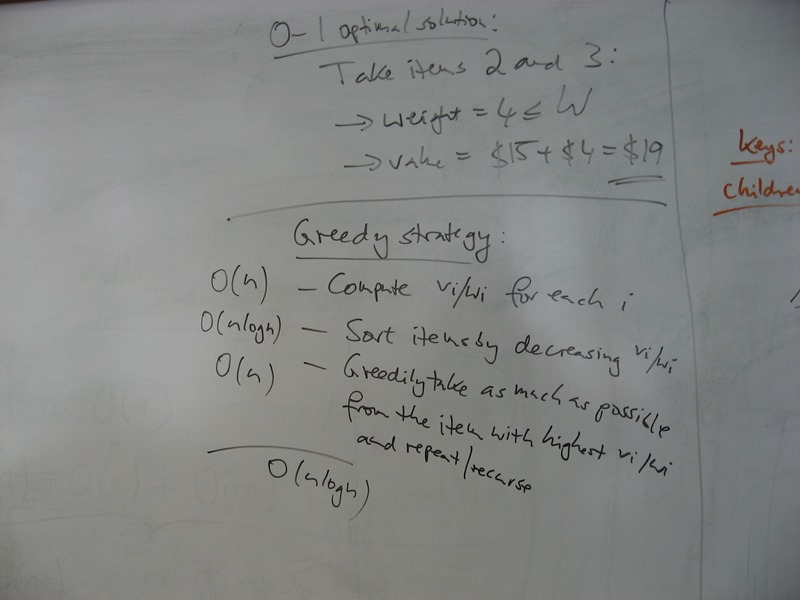 0-1 optimal solution:
Take items 2 and 3:
→ weight = 4 ≤ W
→ value = $15 + $4 = $19
Greedy strategy:
O(n) – Compute vi/wi for each i
O(nlogn) – Sort items by decreasing vi/wi
O(n) – Greedily take as much as possible
from the item with highest vi/wi
and repeat/recurse
O(nlogn)
keys:
children